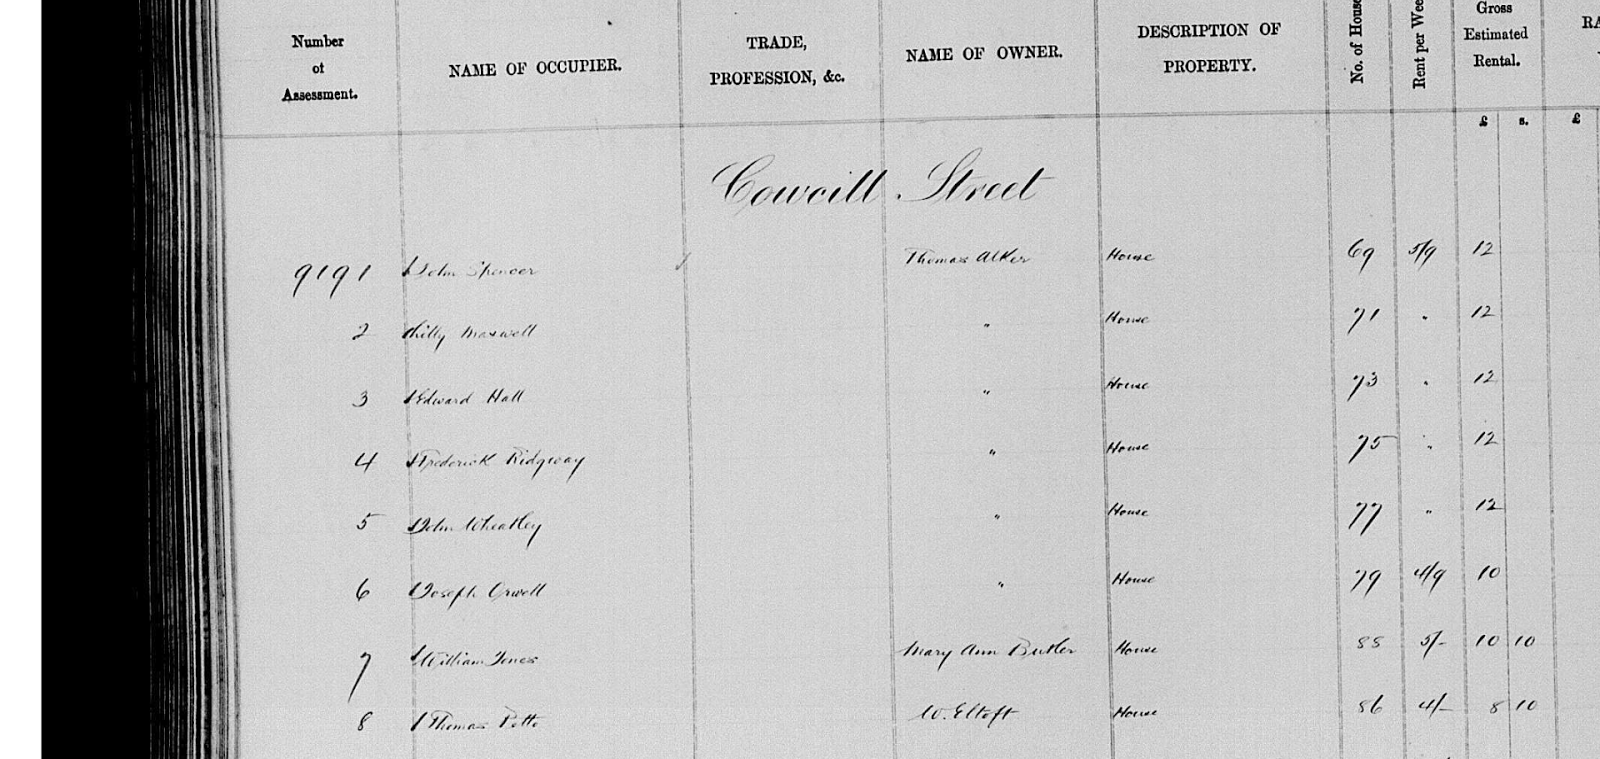 Number of Assessment. NAME OF OCCUPIER. TRADE, PROFESSION, &c. NAME OF OWNER. DESCRIPTION OF PROPERTY. No. of House Rent per Wee Gross Estimated Rental. RA
£ s. £
Cowcill Street
9191 John Spencer Thomas Alker House 69 5/9 12
2 Maxwell " House 71 " 12
3 Edward Hall " House 73 " 12
4 Frederick Ridgway " House 75 " 12
5 John Wheatley " House 77 " 12
6 Joseph Orwell " House 79 4/9 10
7 William Jones Mary Ann Butler House 88 5/- 10 10
8 Thomas Potts W. Eltoft House 86 4/- 8 10